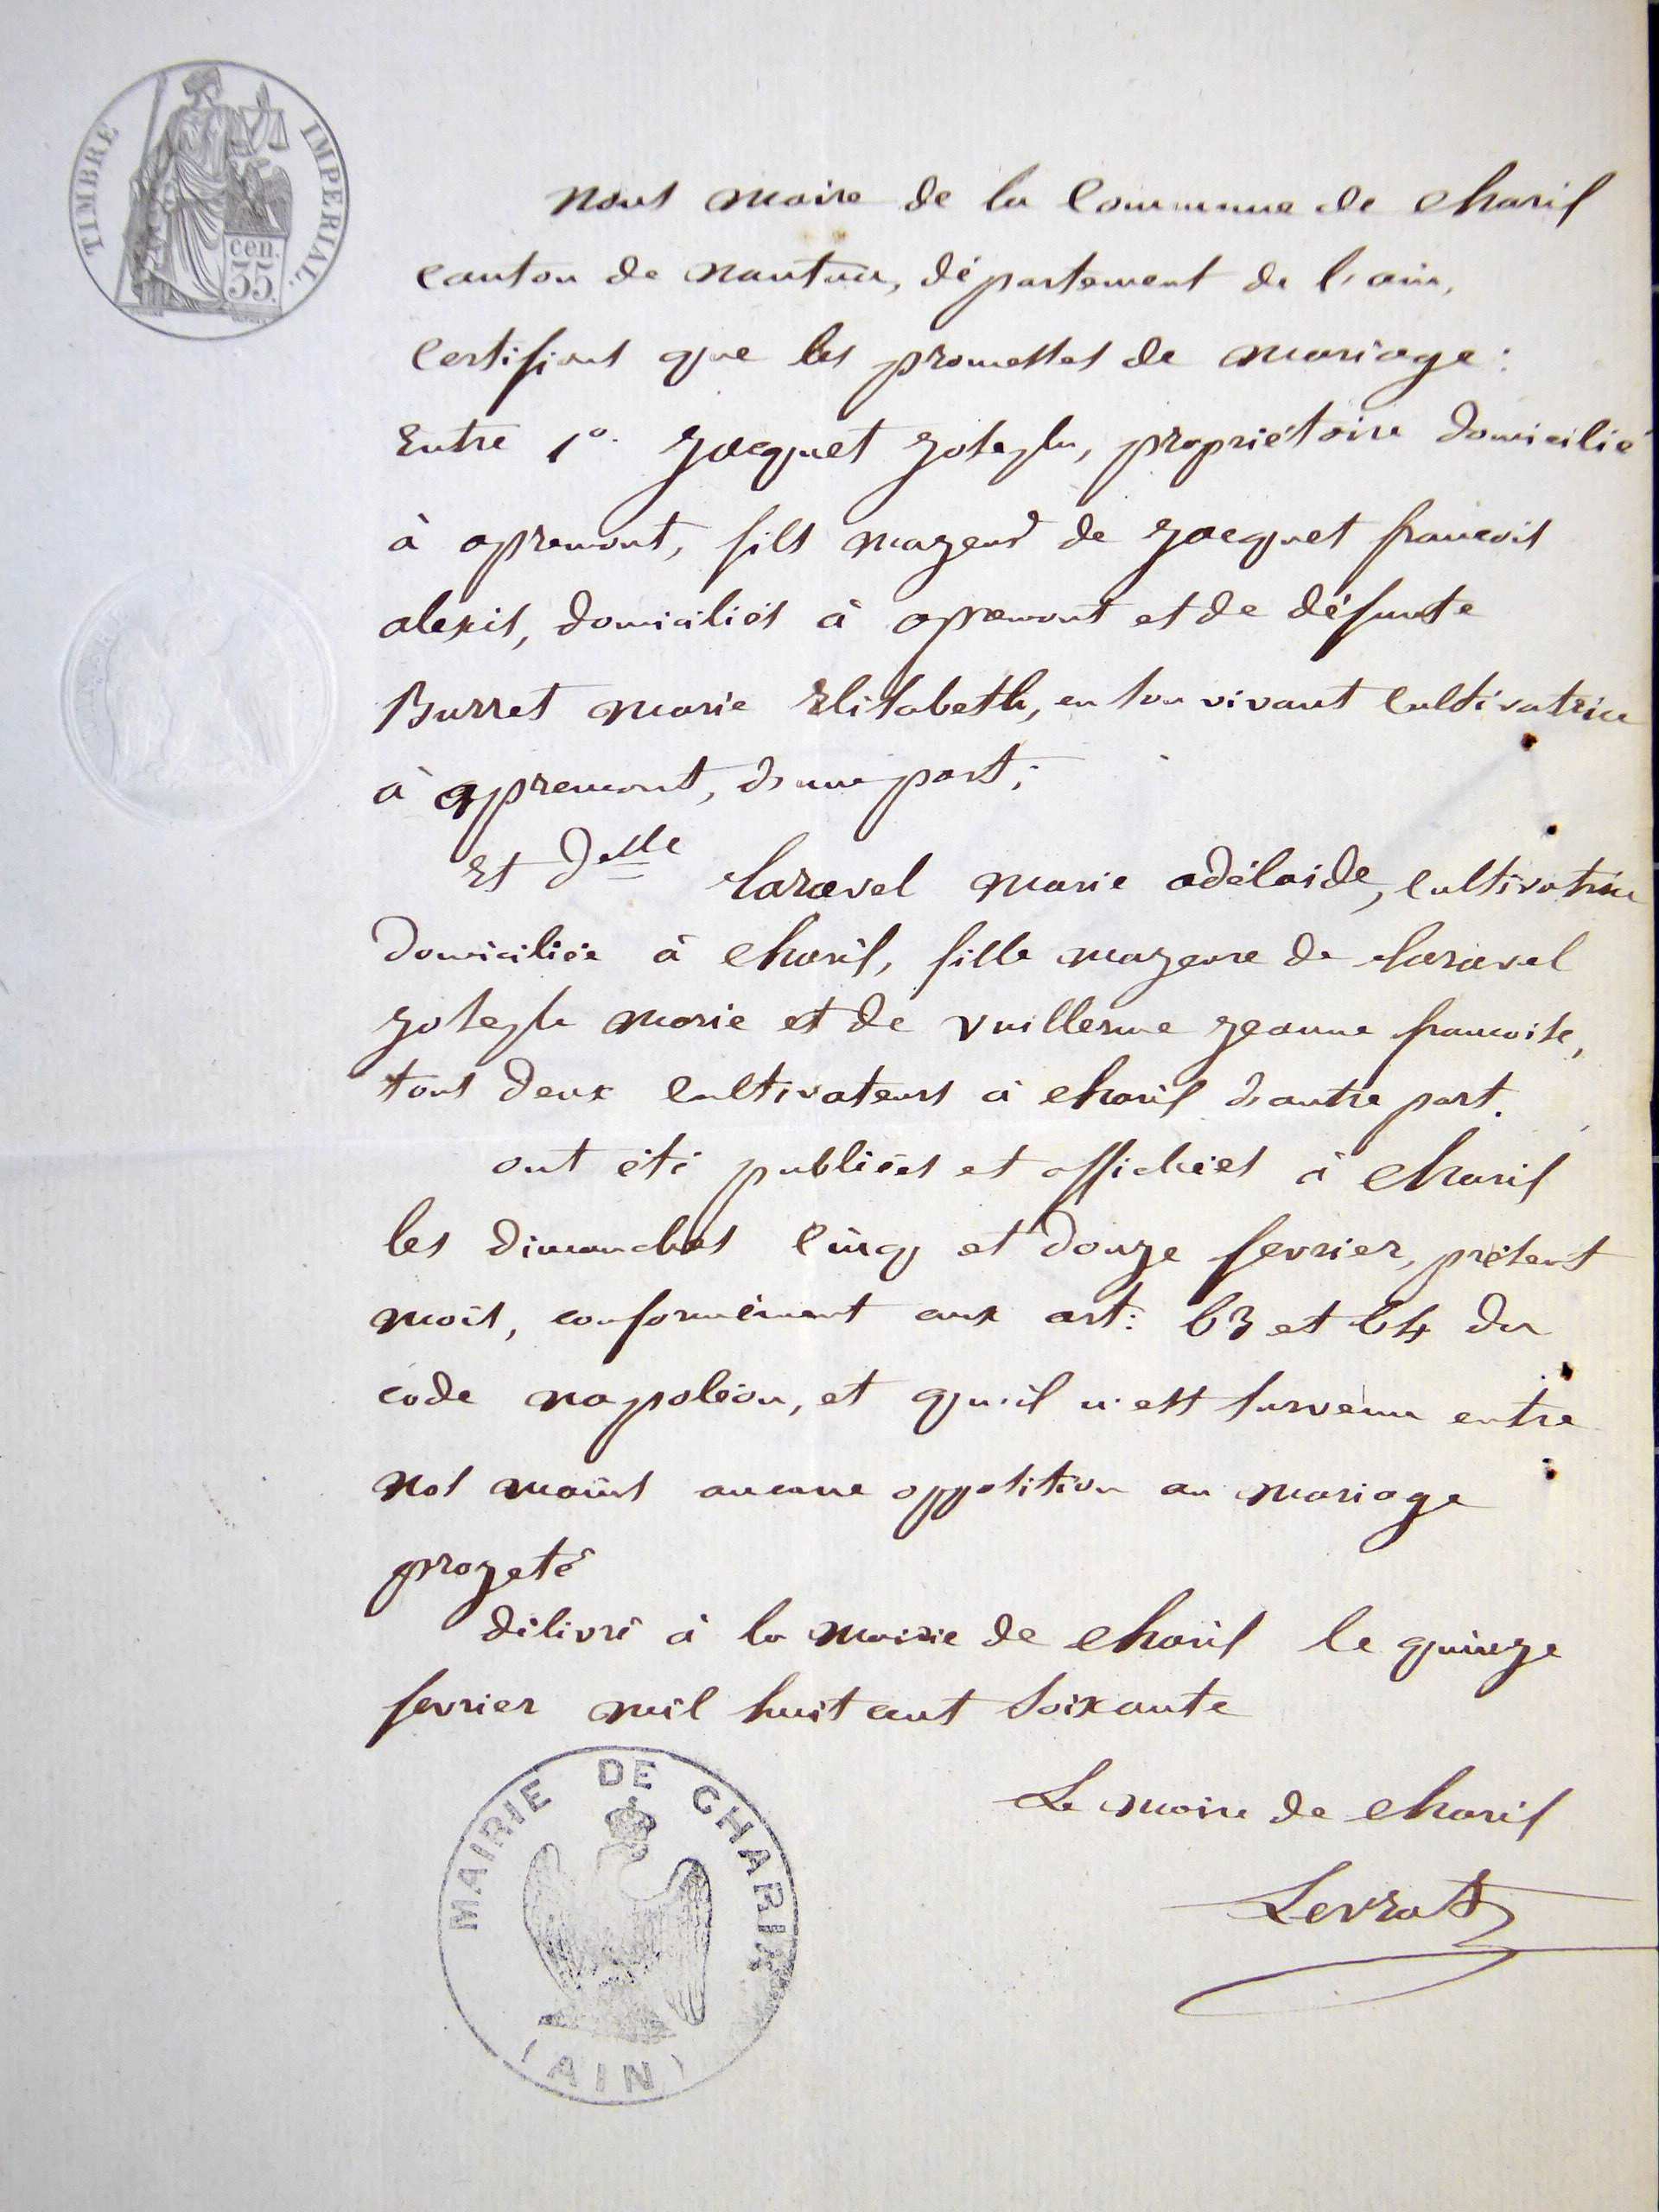 TIMBRE IMPERIAL
cen.
35.
Nous maire de la Commune de Charix
Canton de Nantua, département de l'ain,
Certifions que les promesses de mariage :
Entre 1º. Jacquet Joseph, propriétaire domicilié
à apremont, fils mageur de Jacquet francois
alexis, domiciliés à apremont et de défunte
Burret marie Elisabeth, en son vivant Cultivatrice
à apremont, d'une part ;
Et Delle marie adélaide, Cultivatrice
domiciliée à Charix, fille mageure de
Joseph marie et de vuillerme Jeanne francoise,
tous deux Cultivateurs à Charix d'autre part.
ont été publiées et affichées à Charix
les dimanches Cinq et douze fevrier, présent
mois, conformément aux art: 63 et 64 du
code napoléon, et qu'il n'est survenu entre
nos mains aucune opposition au mariage
progeté
délivré à la mairie de Charix le quinze
fevrier mil huit cent Soixante
Le maire de Charix
Levrat
MAIRIE DE CHARIX
(AIN)